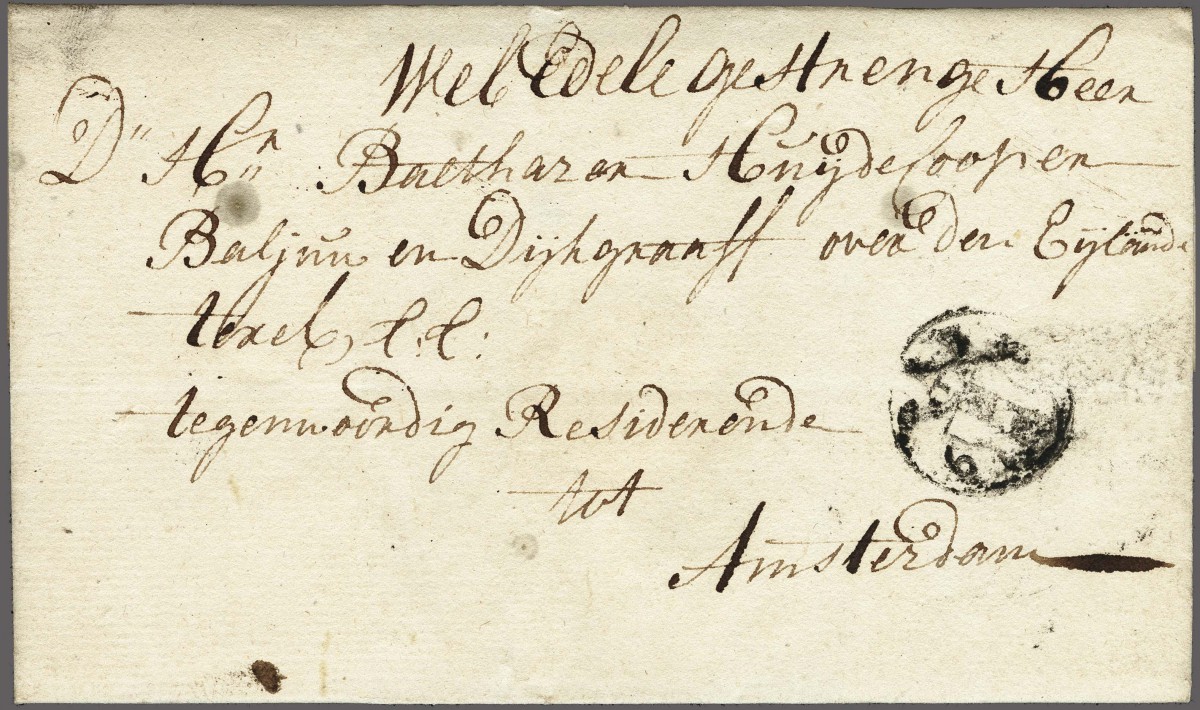 Wel Edele gestrenge Heer
D" Hr Balthazar Huijdecooper
Baljuw en Dijkgraaff over den Eijlande
texel, &:&:
tegenwoordig Residerende
tot
Amsterdam